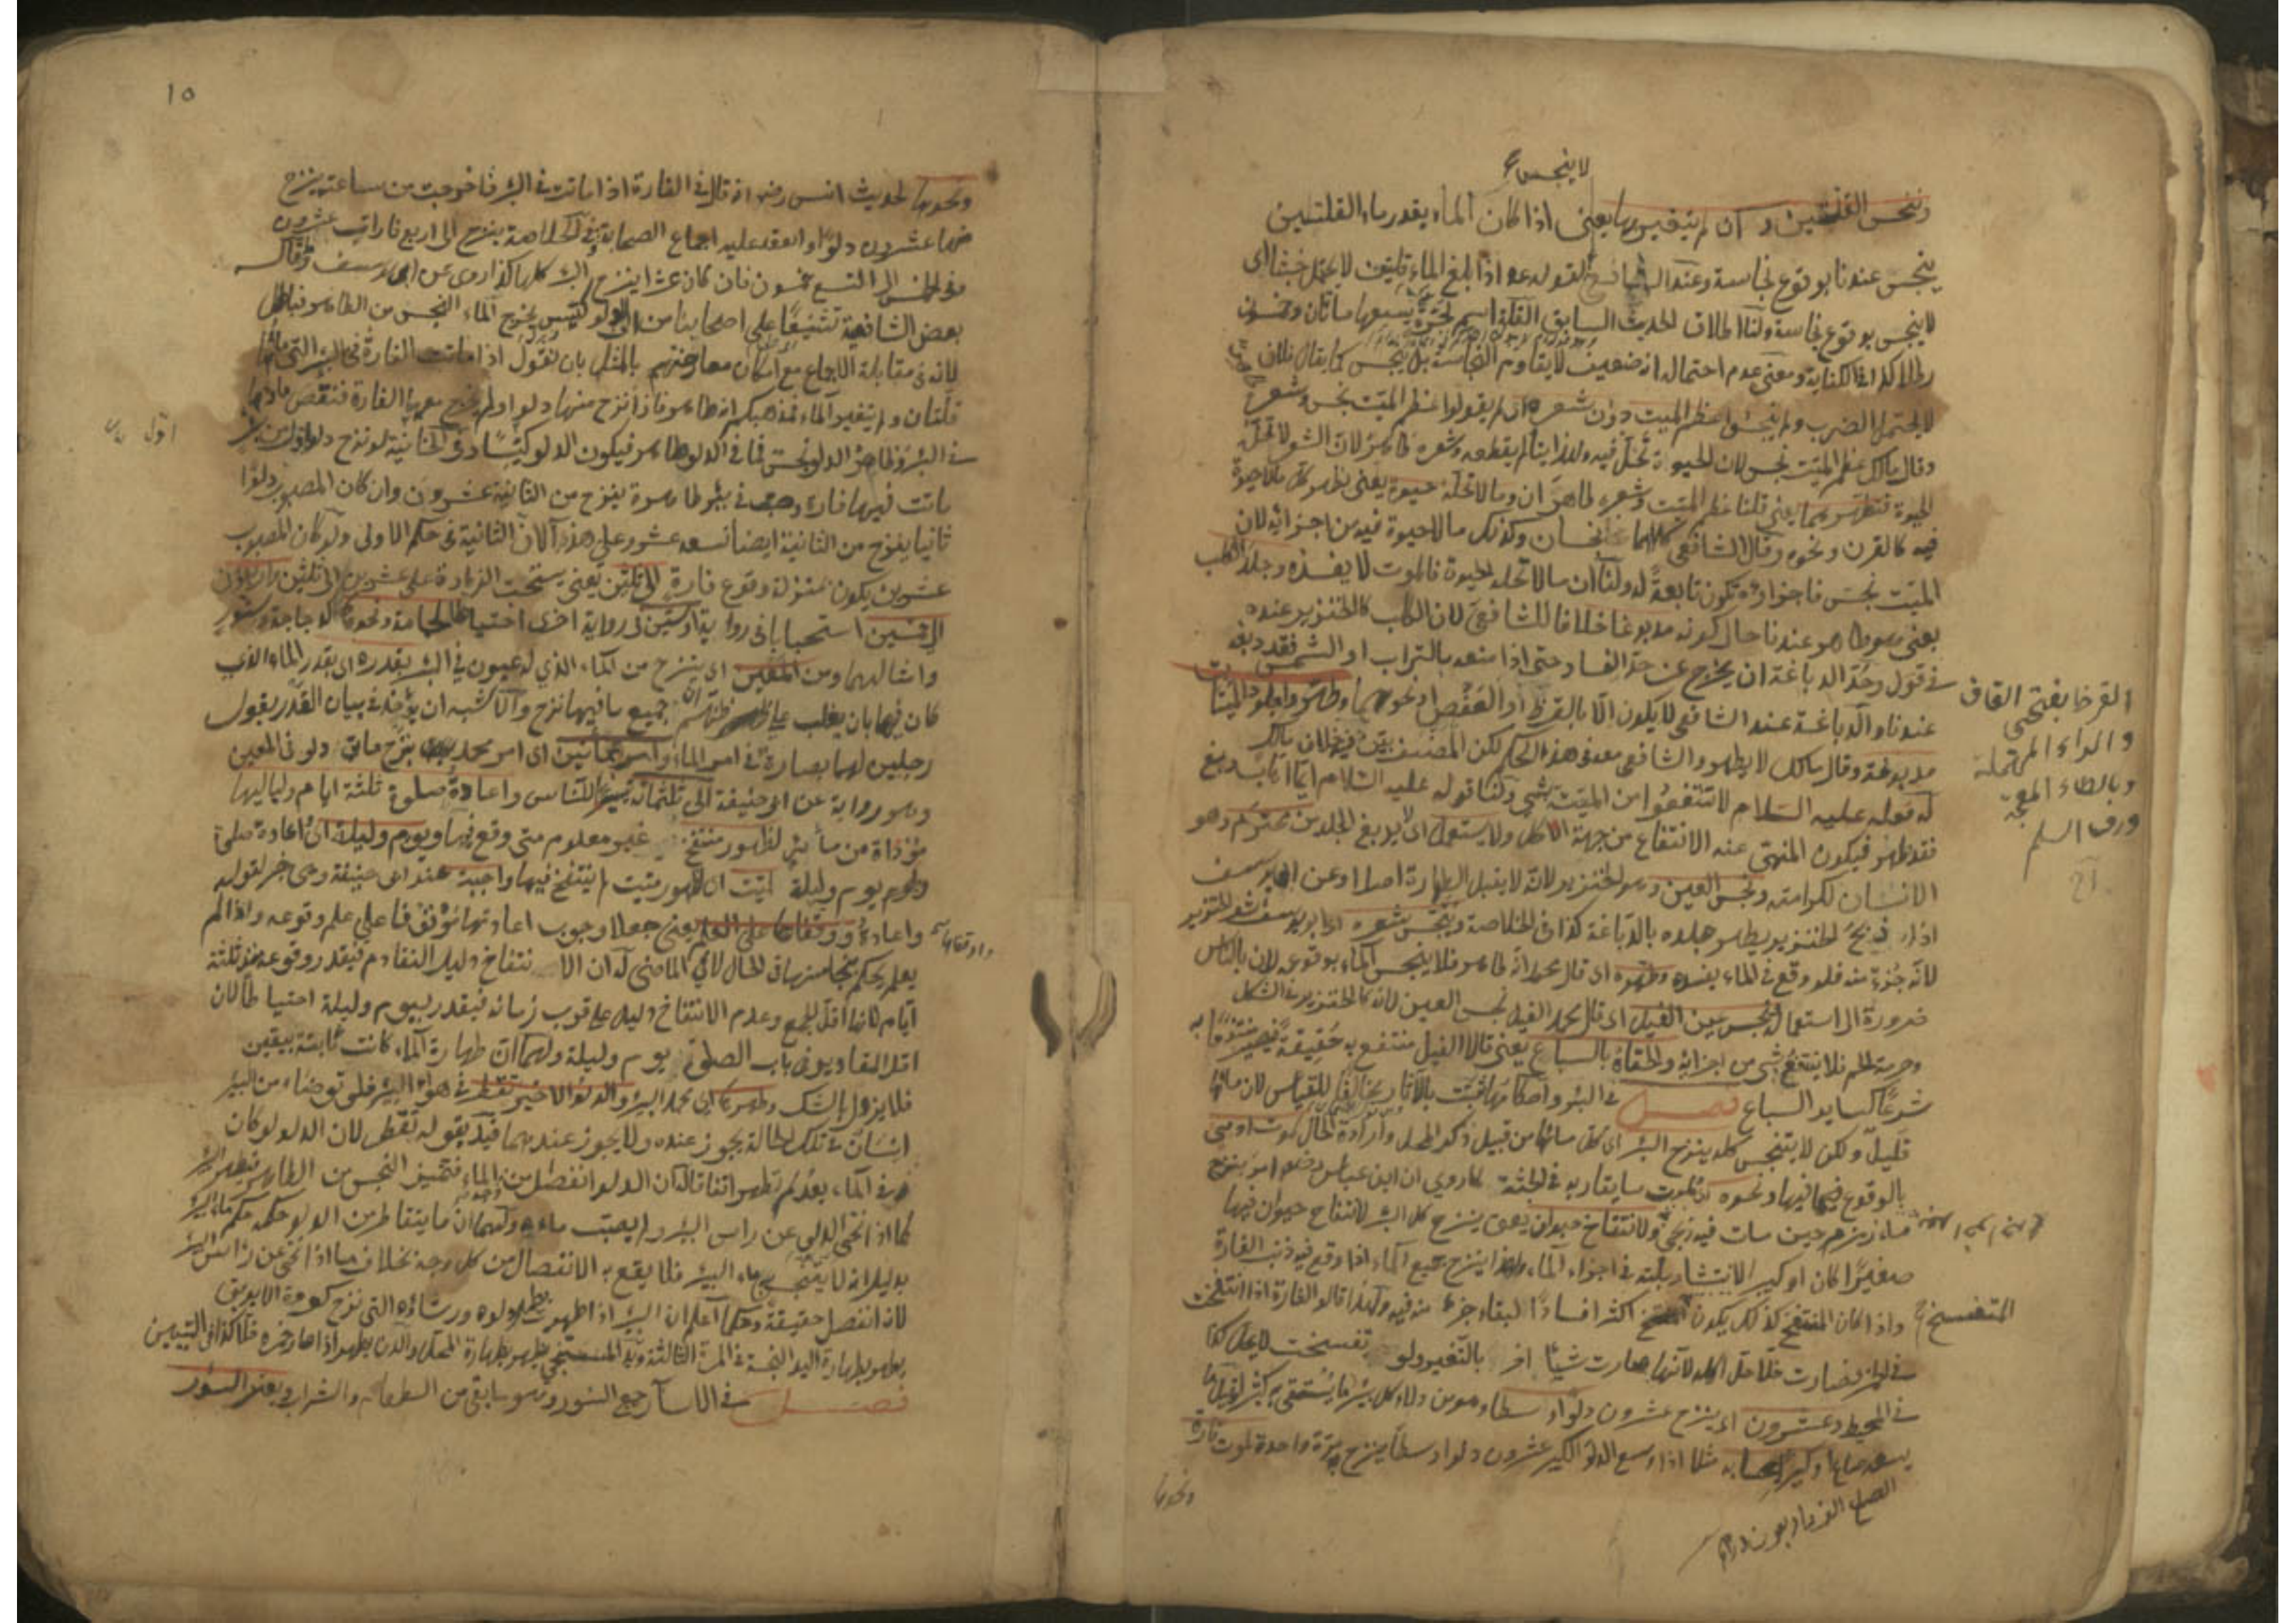 لا ينجس
وننجس القلتين وان لم يتغير بها يعني اذا كان الماء بقدر ماء القلتين
ينجس عندنا بوقوع نجاسة وعند الشافعي لقوله عم اذا بلغ الماء قلتين لا يحتمل خبثا اي
لا ينجس بوقوع نجاسة ولنا اطلاق الحديث السابق القلة اسم لجرة يسعها مائتان وخمسون
رطلا كذا في الكفاية ومعنى عدم احتماله انه ضعيف لا يقاوم النجاسة بل ينجس كما يقال فلان
لا يحتمل الضرب ولم ينجسوا عظم الميت دون شعره اي لم يقولوا عظم الميت نجس وشعره
وقال مالك عظم الميت نجس لان الحيوة تحل فيه ولذا يتألم بقطعه وشعره طاهر لان الشعر لا تحله
الحيوة فنطهرهما يعني قلنا عظم الميت وشعره طاهران وما لا تحله حيوة يعني نطهر كل ما لا حيوة
فيه كالقرن ونحوه وقال الشافعي كلاهما نجسان وكذلك ما لا حيوة فيه من اجزائه لان
الميت نجس فاجزاؤه تكون تابعة له ولنا ان ما لا تحله الحيوة فالموت لا يفسده وجلد الكلب
يعني هو طاهر عندنا حال كونه مدبوغا خلافا للشافعي لان الكلب كالخنزير عنده
في قول وحد الدباغة ان يخرج عن حد الفساد حتى اذا منعه بالتراب او الشمس فقد دبغه
عندنا والدباغة عند الشافعي لا يكون الا بالقرظ او العفص او نحوهما وطهروا جلود الميتات
مدبوغة وقال مالك لا يطهر والشافعي معه في هذا الحكم لكن المصنف بين فيه خلاف مالك
له قوله عليه السلام لا تنتفعوا من الميتة بشيء ولنا قوله عليه السلام ايما اهاب دبغ
فقد طهر فيكون المنهي عنه الانتفاع من جهة الاكل ولا يستعمل اي لا يدبغ الجلد من محترم وهو
الانسان لكرامته ونجس العين وهو الخنزير لانه لا يقبل الطهارة اصلا وعن ابي يوسف
اذا ذبح الخنزير يطهر جلده بالدباغة كذا في الخلاصة وينجس شعره ابو يوسف شعر الخنزير
لانه جزء منه فلو وقع في الماء يفسده وطهره اي قال محمد انه طاهر فلا ينجس الماء بوقوعه لان بالناس
ضرورة الى استعماله ونجس عين الفيل اي قال محمد الفيل نجس العين لانه كالخنزير في الشكل
وحرمة اللحم فلا ينتفع بشيء من اجزائه والحقاه بالسباع يعني قالا الفيل منتفع به حقيقة فيصير منتفعا به
شرعا كسائر السباع فصل في البئر واحكامها ثبت بالآثار بخالف للقياس لان مائها
قليل ولكن لا يتنجس كله ينزح البئر اي كل مائها من قبيل ذكر المحل وارادة الحال لموت ادمي
بالوقوع فيها ونحوه اي لموت ما يقاربه في الجثة كما روي ان ابن عباس رضه امر بنزح
ماء زمزم حين مات فيه زنجي ولانتفاخ حيوان يعني ينزح كل البئر لانتفاخ حيوان فيها
صغيرا كان او كبيرا لانتشار بلته في اجزاء الماء ولهذا ينزح جميع الماء اذا وقع فيه ذنب الفارة
واذا كان المنتفخ كذلك يكون اكثر افسادا لبقاء جزء منه فيه ولهذا قالوا الفارة اذا انتفخت
في الخمر فصارت خلا حل اكله لانها صارت شيئا اخر بالتغير ولو تفسخت لا يحل كذا
في المحيط وعشرون اي ينزح عشرون دلوا وسطا وهو من دلاء كل بئر ما يستقى به كثيرا وقيل ما
يسعه صاعا وكبير بحسابه مثلا اذا وسع الدلو الكبير عشرون دلوا وسطا ينزح مرة واحدة لموت فارة
ونحوها
القرظ بفتحتي القاف
والراء المهملة
وبالظاء المعجمة
ورق السلم
المتفسخ
١٥
ونحوها لحديث انس رضه انه قال في الفارة اذا ماتت في البئر فاخرجت من ساعته ينزح
منها عشرون دلوا وانعقد عليه اجماع الصحابة وفي الخلاصة ينزح الى اربع فارات عشرون
وفي الخمس الى التسع خمسون فان كان عشرا ينزح البئر كلها كذا روي عن ابي يوسف وقال
بعض الشافعية تشنيعا على اصحابنا من الدلو كيس يخرج الماء النجس من الطاهر فباطل
لانه في مقابلة الاجماع مع امكان معارضتهم بالمثل بان نقول اذا ماتت الفارة في البئر التي ماؤها
قلتان ولم يتغير الماء فمذهبكم انه طاهر فاذا نزح منها دلو ولم يخرج معها الفارة فنقص ماؤها
في البئر وظاهر الدلو نجس فما في الدلو طاهر فيكون الدلو كيسا وفي الخانية لو نزح دلو اول من بئر
ماتت فيها فارة وصب في بئر طاهرة ينزح من الثانية عشرون وان كان المصبوب دلوا
ثانيا ينزح من الثانية ايضا تسعة عشر وعلى هذا لان الثانية في حكم الاولى ولو كان المصبوب
عشرين يكون بمنزلة وقوع فارة الى ثلثين يعني يستحب الزيادة على عشرين الى ثلثين
الى خمسين استحبابا في رواية او ستين في رواية اخرى احتياطا لحمامة ونحوها كالدجاجة وسنور
وامثالهما ومن المعين اي ينزح من الماء الذي له عيون في البئر بقدره اي بقدر الماء الذي
كان فيها بان يغلب على ظنهم ان جميع ما فيها نزح والاشبه ان يؤخذ في بيان القدر بقول
رجلين لهما بصارة في امر الماء وامر بمائتين اي امر محمد بنزح مائتي دلو في المعين
وهو رواية عن ابي حنيفة الى ثلثمائة تيسيرا للناس واعادة صلوة ثلثة ايام ولياليها
مؤداة من مائها لظهور منتفخ غير معلوم متى وقع فيها ويوم وليلة اي اعادة صلوة
يوم وليلة لميت اي لظهور ميت لم ينتفخ فيها واجبة عند ابي حنيفة وهي خبر لقوله
واعادة ووقفاها على العلم يعني جعلا وجوب اعادتها موقوفا على علم وقوعه واذا لم
يعلم يحكم بنجاستها في الحال لا في الماضي له ان الانتفاخ دليل التقادم فيقدر وقوعه منذ ثلثة
ايام لانها اقل الجمع وعدم الانتفاخ دليل على قرب زمانه فيقدر بيوم وليلة احتياطا لان
اقل المقادير في باب الصلوة يوم وليلة ولهما ان طهارة الماء كانت ثابتة بيقين
فلا يزول بالشك وطهر محمد البئر والدلو الاخير تقطر في هواء البئر فلو توضاء من البئر
انسان في تلك الحالة يجوز عنده ولا يجوز عندهما قيد بقوله تقطر لان الدلو لو كان
في الماء بعد لم تطهر اتفاقا له ان الدلو انفصل من الماء فتميز النجس من الطاهر فيطهر البئر
كما اذا نحي الدلو عن راس البئر ولم يصب ماءه ولهما ان ما يتقاطر من الدلو حكمه حكم ماء البئر
بدليل انه لا ينجس ماء البئر فلا يقع به الانفصال من كل وجه بخلاف ما اذا نحي عن راس البئر
لانه انفصل حقيقة وحكما اعلم ان البئر اذا طهرت يطهر دلوه ورشاؤه التي نزح كعروة الابريق
يطهر بطهارة اليد النجسة في المرة الثالثة ويد المستنجي يطهر بطهارة المحل والدن يطهر اذا صار خمره خلا كذا في التبيين
فصل في الاسآر جمع السؤر وهو ما بقي من الطعام والشراب ويعتبر السؤر